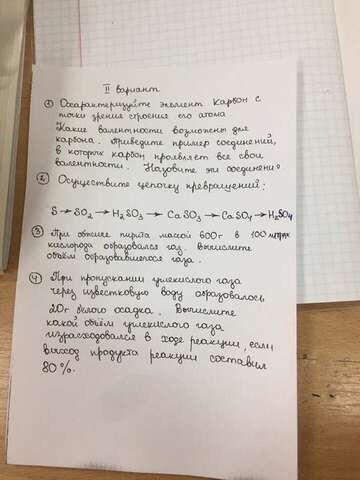 II вариант
① Охарактеризуйте элемент Карбон с
точки зрения строения его атома
Какие валентности возможны для
карбона. Приведите пример соединений,
в которых карбон проявляет все свои
валентности. Назовите эти соединени
② Осуществите цепочку превращений:
S → SO₂ → H₂SO₃ → CaSO₃ → CaSO₄ → H₂SO₄
③ При обжиге пирита массой 600г в 100 литрах
кислорода образовался газ. Вычислите
объём образовавшегося газа.
④ При пропускании углекислого газа
через известковую воду образовалось
20г белого осадка. Вычислите
какой объём углекислого газа
израсходовался в ходе реакции, если
выход продукта реакции составил
80%.